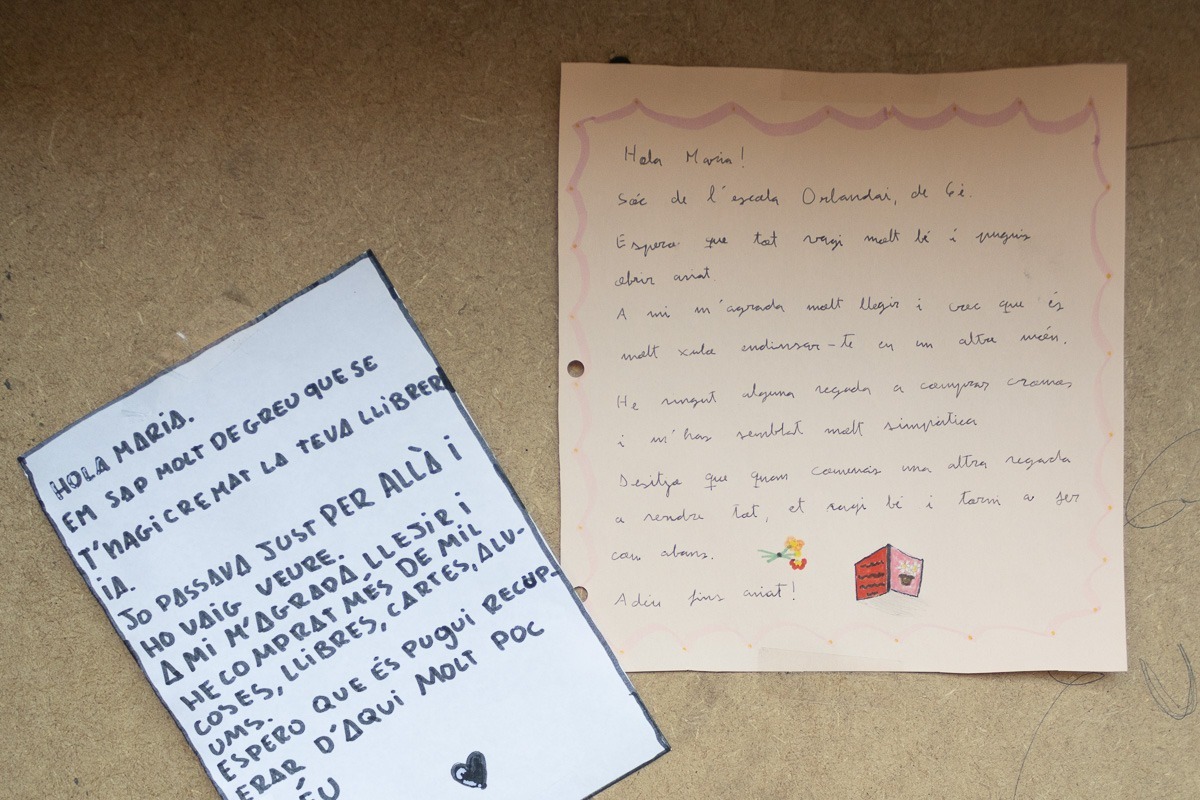 HOLA MARIA.
EM SAP MOLT DE GREU QUE SE
T'HAGI CREMAT LA TEVA LLIBRER
IA.
JO PASSAVA JUST PER ALLÀ I
HO VAIG VEURE.
A MI M'AGRADA LLEJIR I
HE COMPRAT MÉS DE MIL
COSES, LLIBRES, CARTES, ALU-
UMS.
ESPERO QUE ÉS PUGUI RECUP-
ERAR D'AQUI MOLT POC
ÉU
Hola Maria!
Sóc de l'escola Orlandai, de 6è.
Espero que tot vagi molt bé i puguis
obrir aviat.
A mi m'agrada molt llegir i crec que és
molt xulo endinsar-te en un altre món.
He vingut alguna vegada a comprar cromos
i m'has semblat molt simpàtica
Desitjo que quan comencis una altra vegada
a vendre tot, et vagi bé i torni a ser
com abans.
Adéu fins aviat!